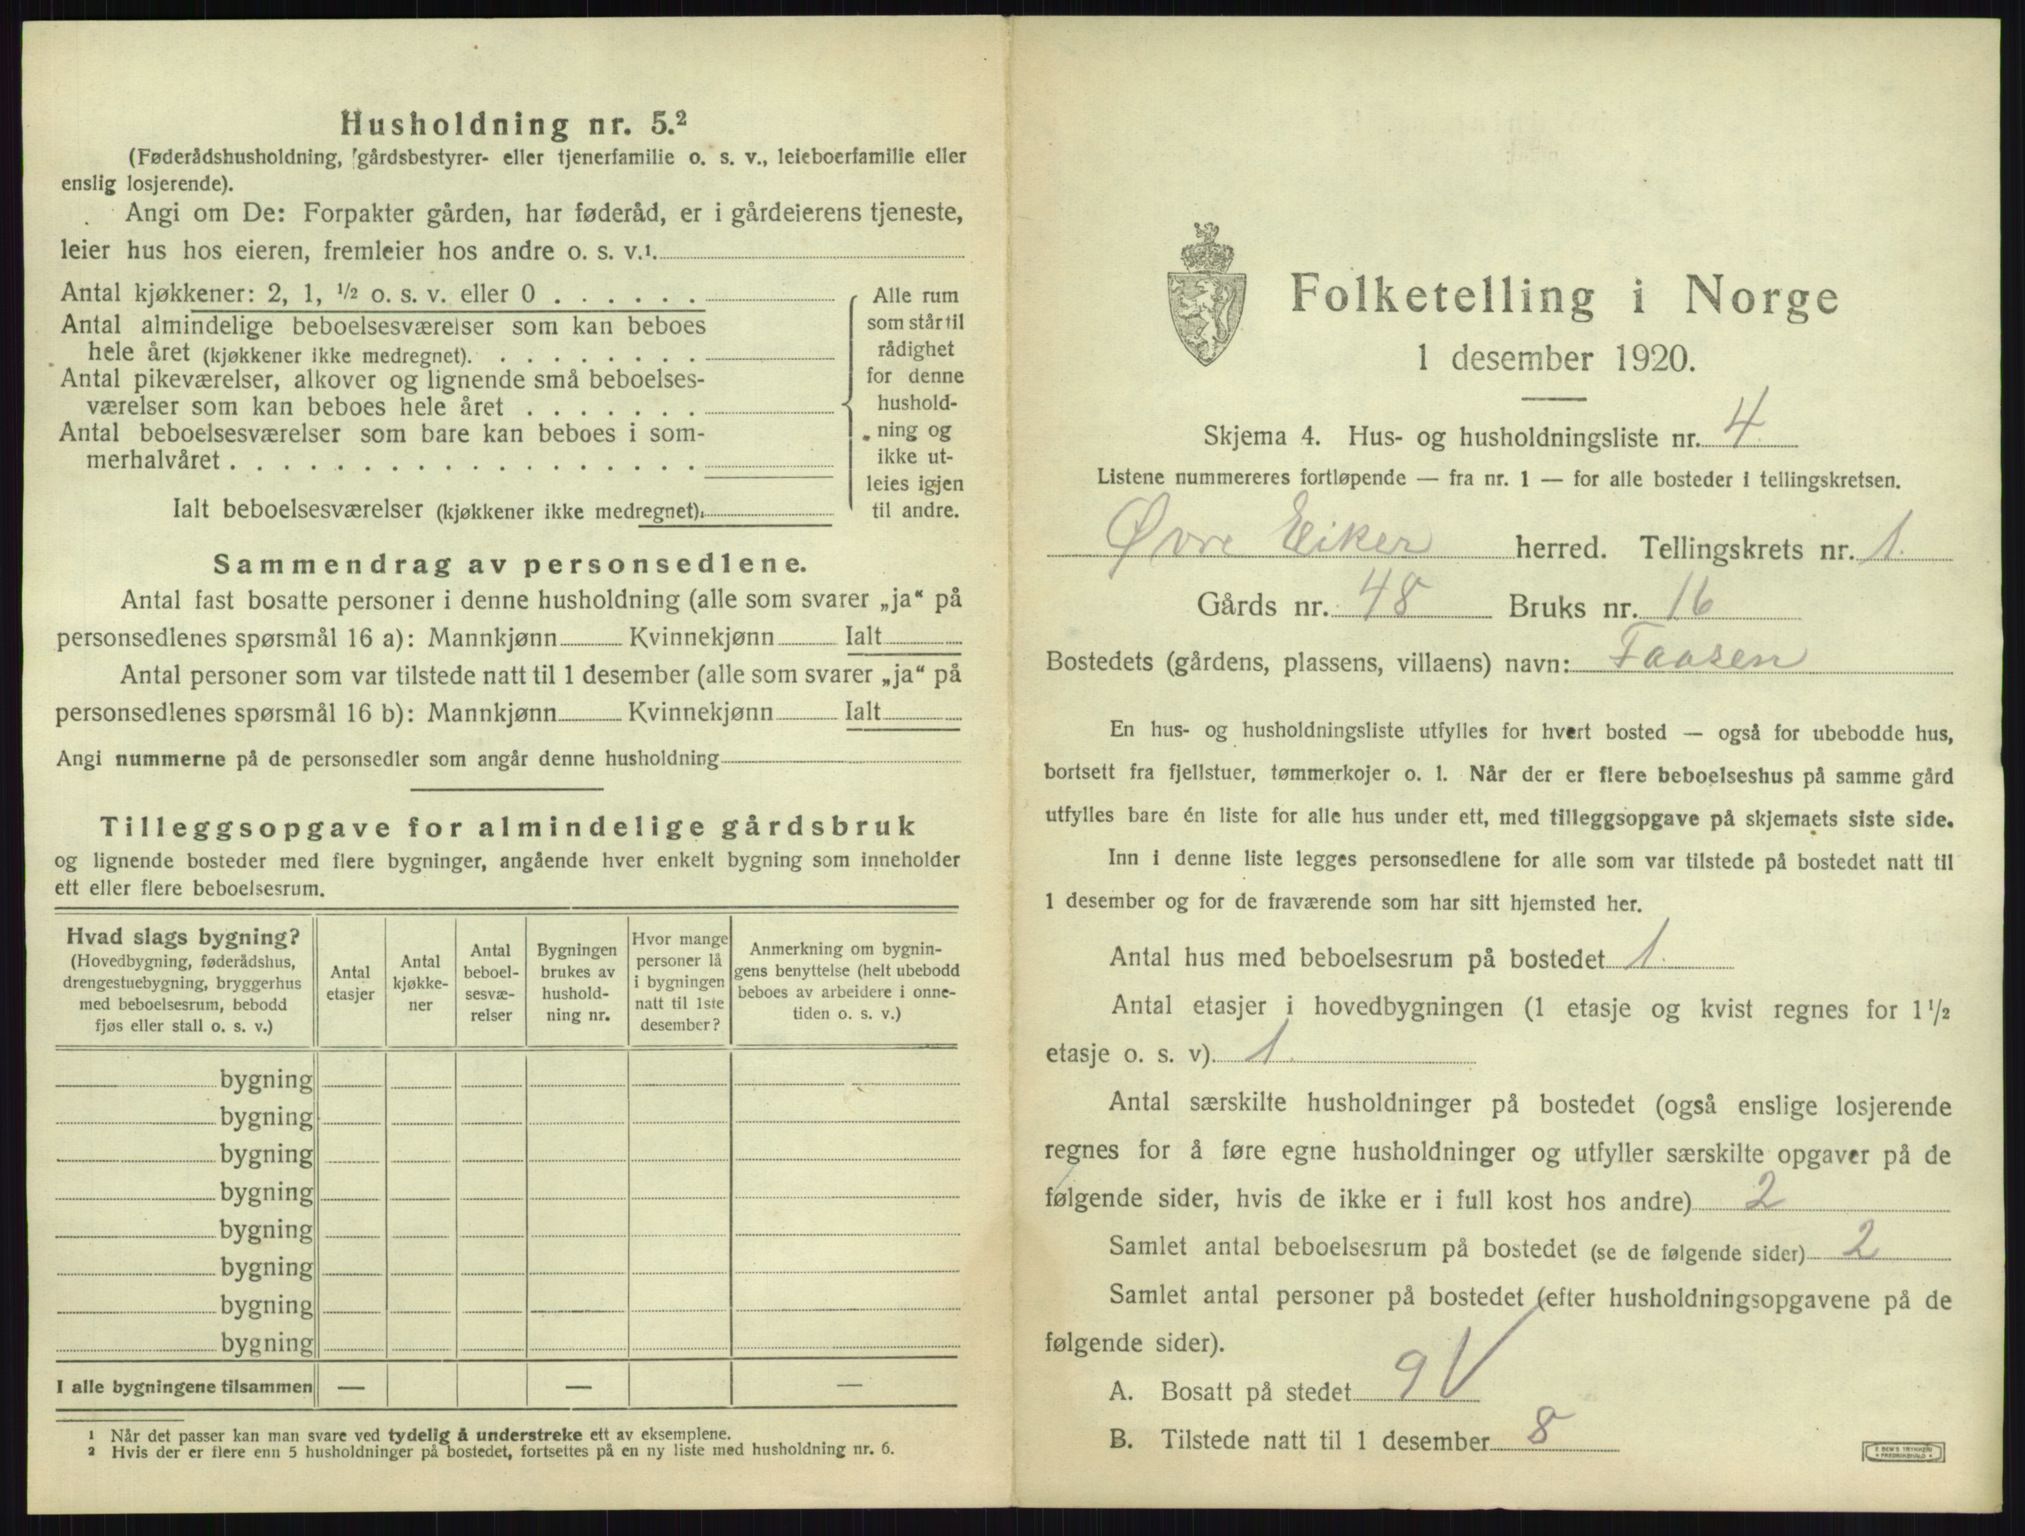 Husholdning nr. 5.²
(Føderådshusholdning, gårdsbestyrer- eller tjenerfamilie o. s. v., leieboerfamilie eller
enslig losjerende).
Angi om De: Forpakter gården, har føderåd, er i gårdeierens tjeneste,
leier hus hos eieren, fremleier hos andre o. s. v.¹
Antal kjøkkener: 2, 1, ½ o. s. v. eller 0 . . . . . .
Antal almindelige beboelsesværelser som kan beboes
hele året (kjøkkener ikke medregnet). . . . . . . . .
Antal pikeværelser, alkover og lignende små beboelses-
værelser som kan beboes hele året . . . . . . .
Antal beboelsesværelser som bare kan beboes i som-
merhalvåret . . . . . . . . . . . . . . . . . .
Ialt beboelsesværelser (kjøkkener ikke medregnet).
Alle rum
som står til
rådighet
for denne
hushold-
ning og
ikke ut-
leies igjen
til andre.
Sammendrag av personsedlene.
Antal fast bosatte personer i denne husholdning (alle som svarer „ja“ på
personsedlenes spørsmål 16 a): Mannkjønn Kvinnekjønn Ialt
Antal personer som var tilstede natt til 1 desember (alle som svarer „ja“ på
personsedlenes spørsmål 16 b): Mannkjønn Kvinnekjønn Ialt
Angi nummerne på de personsedler som angår denne husholdning
Tilleggsopgave for almindelige gårdsbruk
og lignende bosteder med flere bygninger, angående hver enkelt bygning som inneholder
ett eller flere beboelsesrum.
Hvad slags bygning?
(Hovedbygning, føderådshus,
drengestuebygning, bryggerhus
med beboelsesrum, bebodd
fjøs eller stall o. s. v.)
Antal
etasjer
Antal
kjøkke-
ner
Antal
beboel-
sesvæ-
relser
Bygningen
brukes av
hushold-
ning nr.
Hvor mange
personer lå
i bygningen
natt til 1ste
desember?
Anmerkning om bygnin-
gens benyttelse (helt ubebodd
beboes av arbeidere i onne-
tiden o. s. v.)
bygning
bygning
bygning
bygning
bygning
bygning
bygning
bygning
I alle bygningene tilsammen — — —
¹ Når det passer kan man svare ved tydelig å understreke ett av eksemplene.
² Hvis der er flere enn 5 husholdninger på bostedet, fortsettes på en ny liste med husholdning nr. 6.
Folketelling i Norge
1 desember 1920.
Skjema 4. Hus- og husholdningsliste nr. 4
Listene nummereres fortløpende — fra nr. 1 — for alle bosteder i tellingskretsen.
Øvre Eiker herred. Tellingskrets nr. 1.
Gårds nr. 48 Bruks nr. 16
Bostedets (gårdens, plassens, villaens) navn: Faasen
En hus- og husholdningsliste utfylles for hvert bosted — også for ubebodde hus,
bortsett fra fjellstuer, tømmerkojer o. l. Når der er flere beboelseshus på samme gård
utfylles bare én liste for alle hus under ett, med tilleggsopgave på skjemaets siste side.
Inn i denne liste legges personsedlene for alle som var tilstede på bostedet natt til
1 desember og for de fraværende som har sitt hjemsted her.
Antal hus med beboelsesrum på bostedet 1.
Antal etasjer i hovedbygningen (1 etasje og kvist regnes for 1½
etasje o. s. v). 1.
Antal særskilte husholdninger på bostedet (også enslige losjerende
regnes for å føre egne husholdninger og utfyller særskilte opgaver på de
følgende sider, hvis de ikke er i full kost hos andre) 2
Samlet antal beboelsesrum på bostedet (se de følgende sider) 2
Samlet antal personer på bostedet (efter husholdningsopgavene på de
følgende sider).
A. Bosatt på stedet 9 V
B. Tilstede natt til 1 desember 8